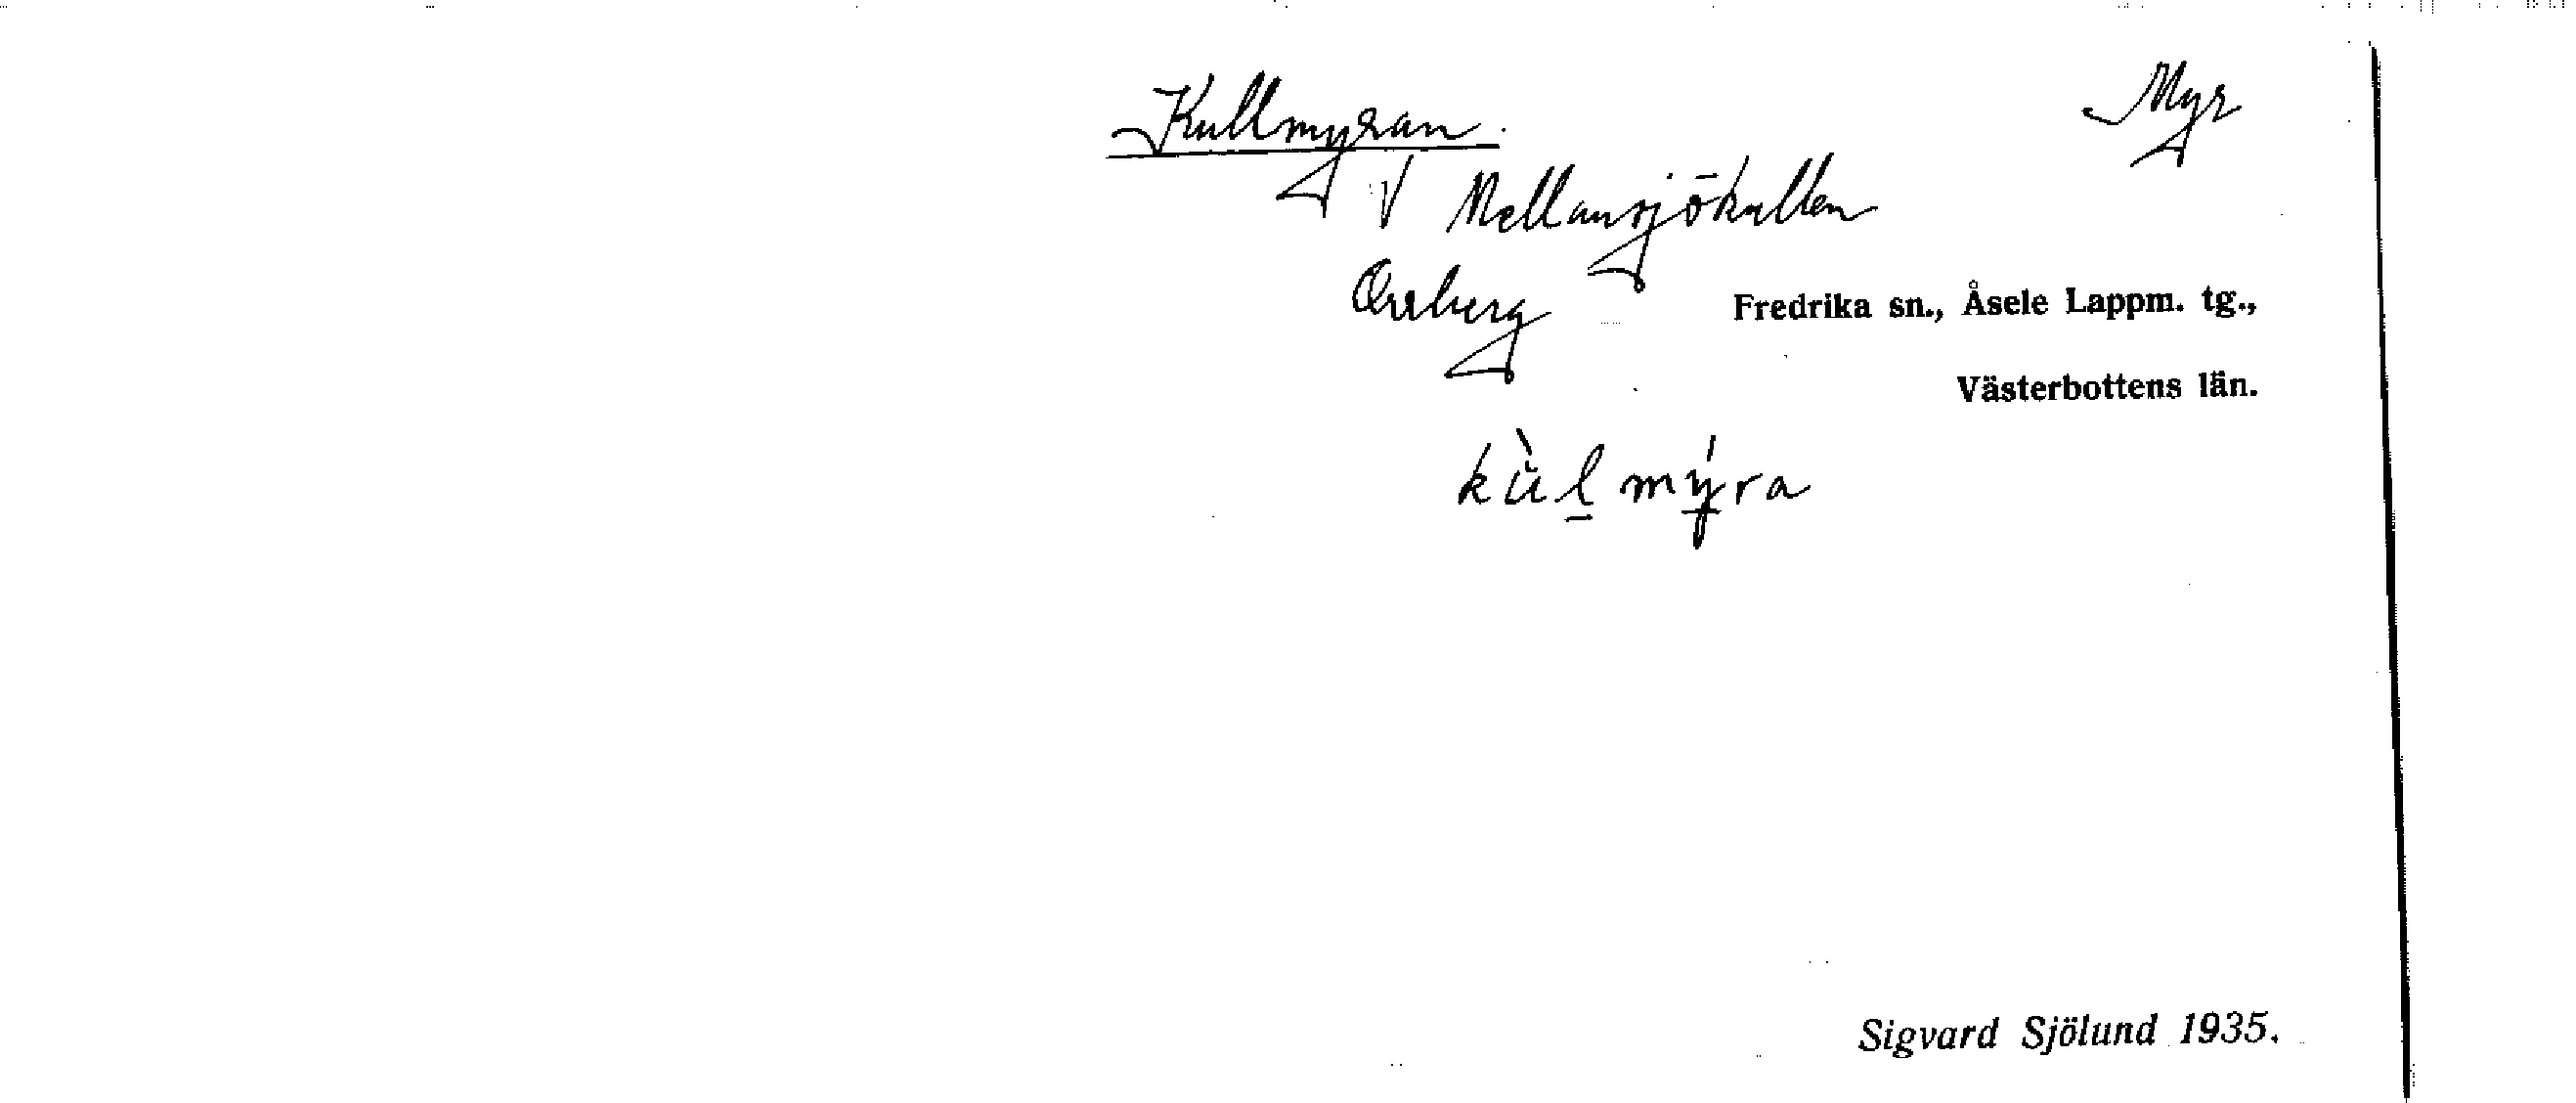 Kullmyran. Myr
V Mellansjökullen
Orrberg Fredrika sn., Åsele Lappm. tg.,
Västerbottens län.
kùl̲mýra
Sigvard Sjölund 1935.